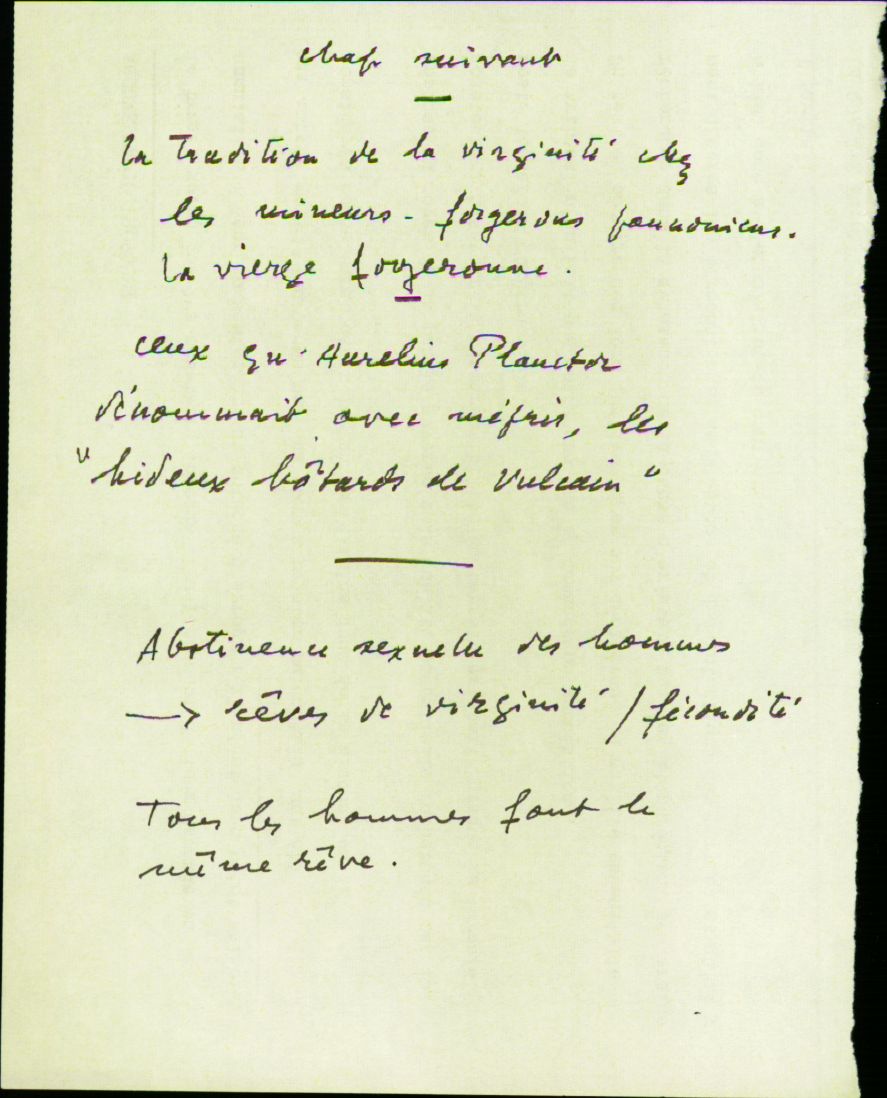 chap suivant
la Tradition de la virginité chez
les mineurs - forgerons pannoniens.
la vierge forgeronne.
ceux qu'Aurelius Planctor
dénommait avec mépris, les
"hideux bâtards de Vulcain"
Abstinence sexuelle des hommes
→ rêves de virginité / fécondité
Tous les hommes font le
même rêve.